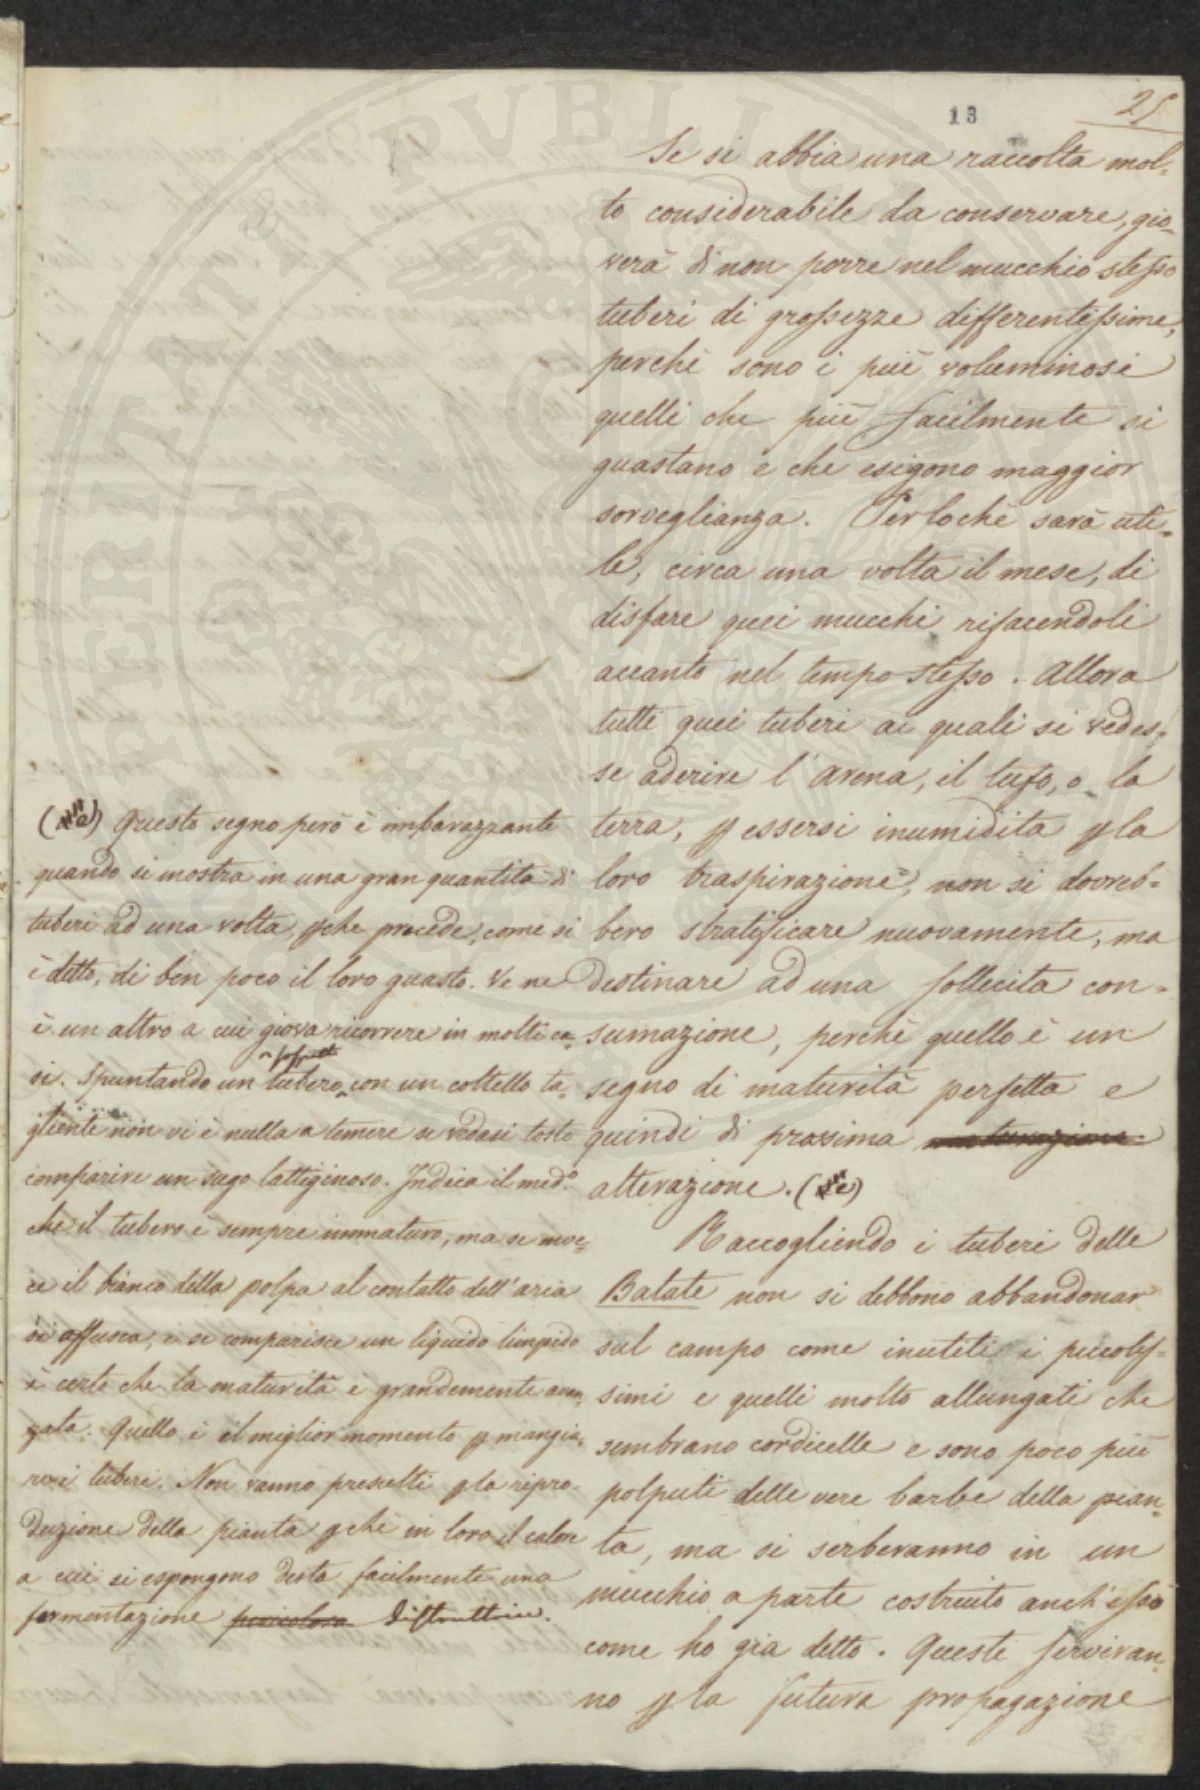 13
25
Se si abbia una raccolta mol-
to considerabile da conservare, gio-
verà di non porre nel mucchio stesso
tuberi di grossezze differentissime,
perchè sono i più voluminosi
quelli che più facilmente si
guastano e che esigono maggior
sorveglianza. Perlochè sarà uti-
le, circa una volta il mese, di
disfare quei mucchi rifacendoli
accanto nel tempo stesso. Allora
tutti quei tuberi ai quali si vedes-
se aderire l'arena, il tufo, o la
terra, p essersi inumidita p la
loro traspirazione, non si dovreb-
bero stratificare nuovamente, ma
destinare ad una sollecita con-
sumazione, perchè quello è un
segno di maturità perfetta e
quindi di prossima
alterazione.
Raccogliendo i tuberi delle
Batate non si debbono abbandonar
sul campo come inutili i piccolis-
simi e quelli molto allungati che
sembrano cordicelle e sono poco più
polputi delle vere barbe della pian-
ta, ma si serberanno in un
mucchio a parte costruito anch'esso
come ho già detto. Questi serviran-
no p la futura propagazione
Questo segno però è imbarazzante
quando si mostra in una gran quantità di
tuberi ad una volta, pchè precede, come si
è detto, di ben poco il loro guasto. Ve ne
è un altro a cui giova ricorrere in molti ca-
si. Spuntando un tubero sospetto con un coltello ta-
gliente non vi è nulla a temere se vedasi tosto
comparire un sugo lattiginoso. Indica il med.o
che il tubero è sempre immaturo, ma se inve-
ce il bianco della polpa al contatto dell'aria
si offusca, e se comparisce un liquido limpido
è certo che la maturità è grandemente avan-
zata. Quello è il miglior momento p mangia-
re i tuberi. Non vanno prescelti p la ripro-
duzione della pianta pchè in loro il calore
a cui si espongono desta facilmente una
fermentazione pericolosa distruttrice.